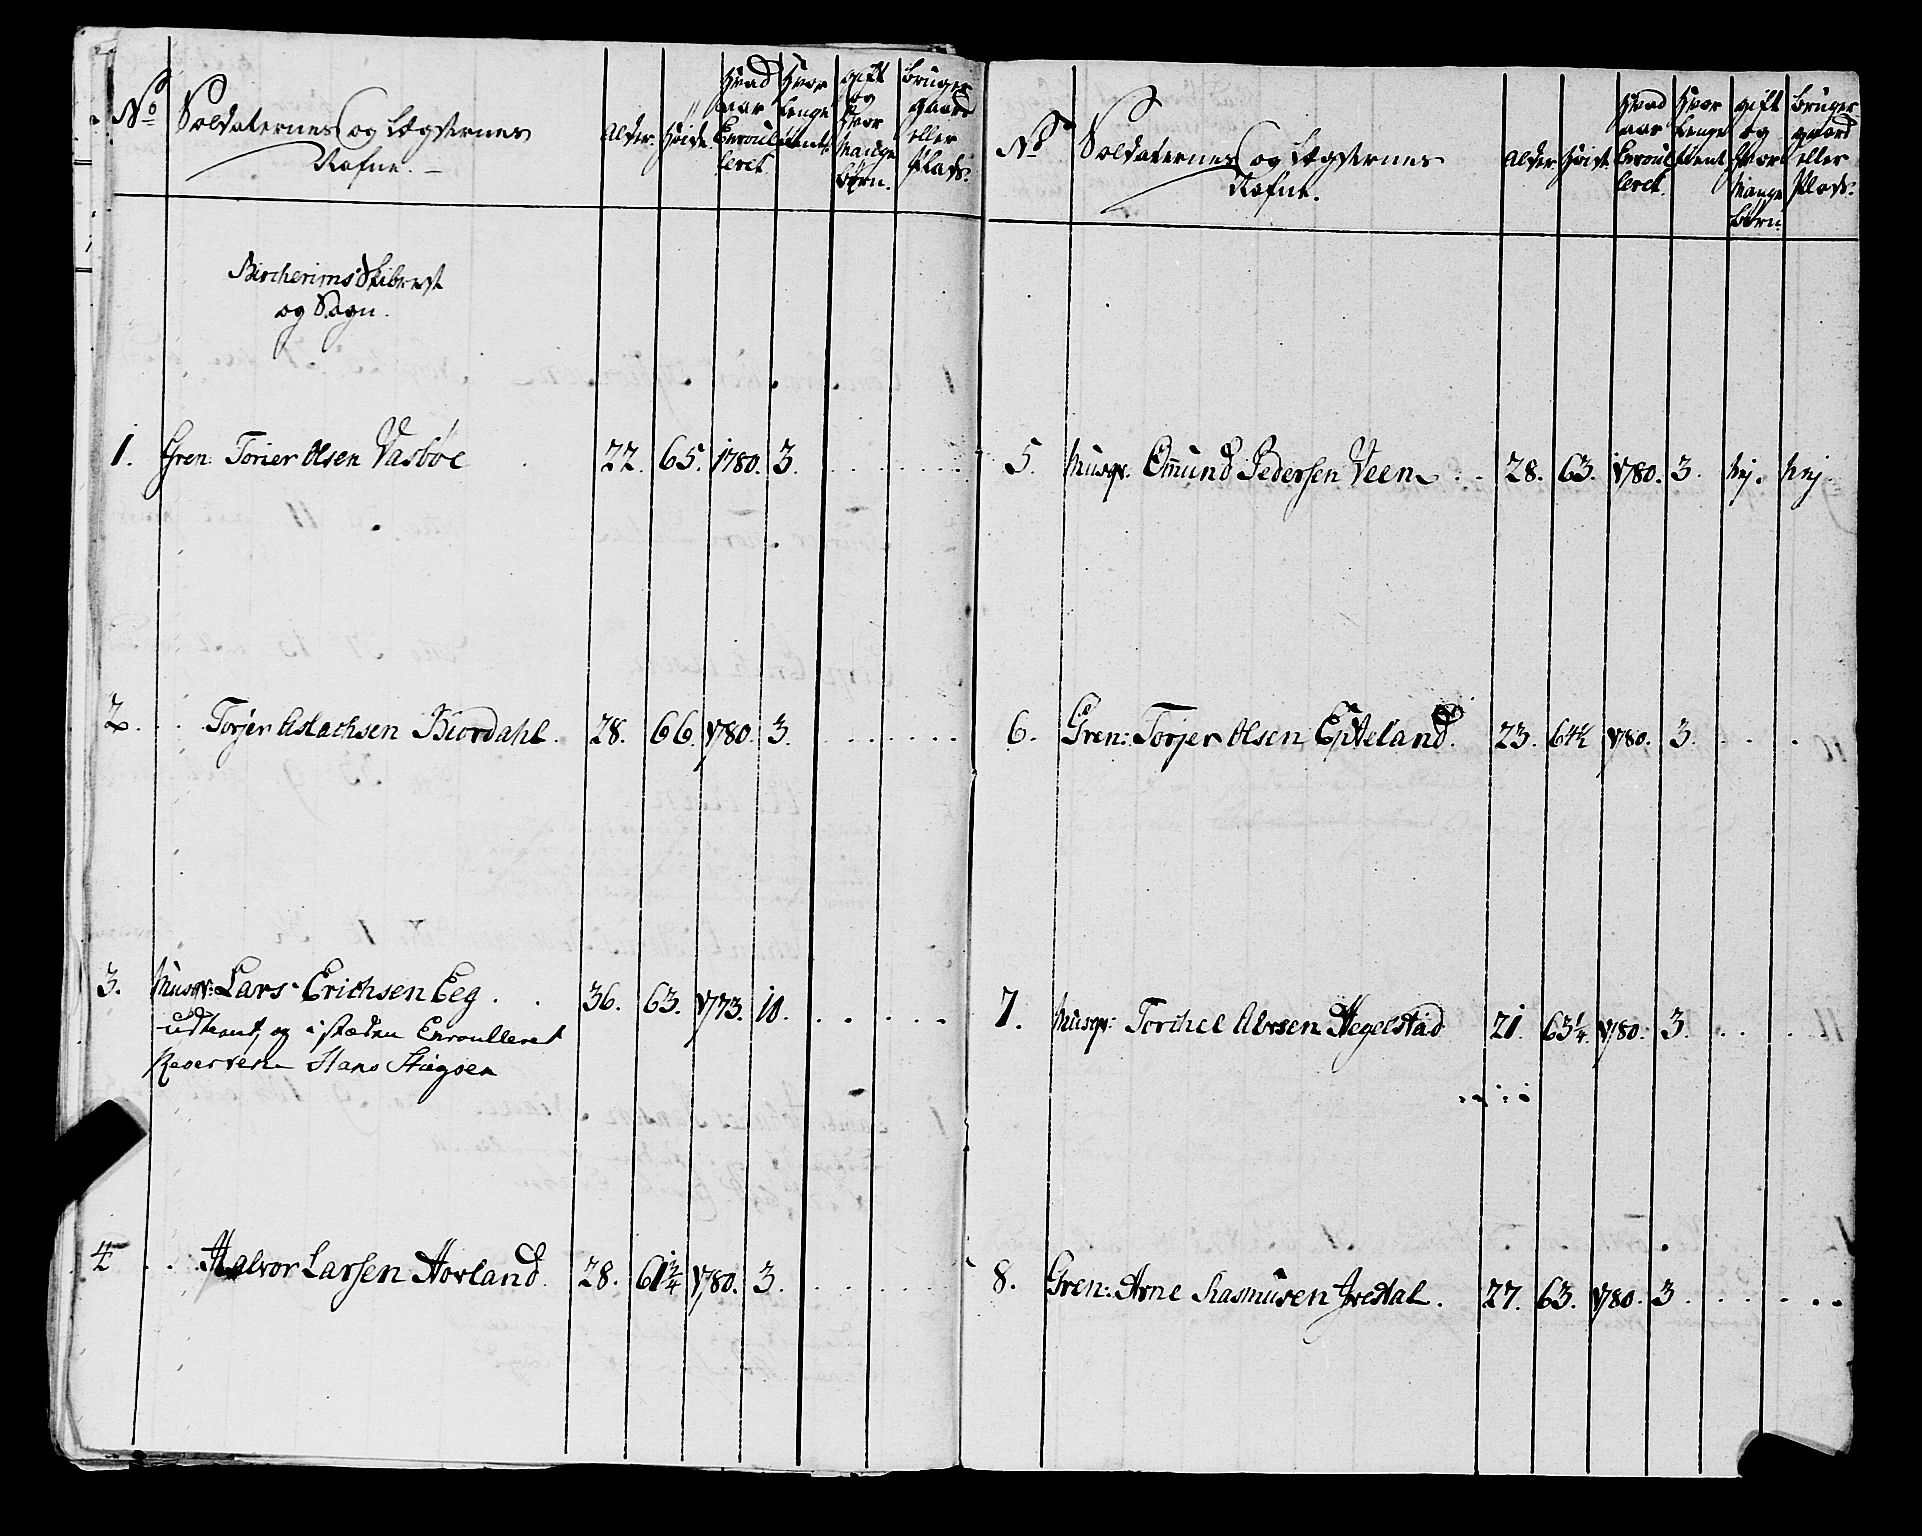 No
Soldaternes og Lægsternes
Nafne.
Alder.
Høide.
Hvad
aar
Enroul
leret.
Hvor
lenge
tient
gift
og
Hvor
Mange
Børn.
Bruger
gaard
eller
Plads.
Bircherims Skibrest
og Sogn.
1. Gren: Torier Olsen Vasbøe 22. 65. 1780. 3.
2. Torjer Aslachsen Biordahl. 28. 66. 1780. 3.
3. Musqr: Lars Erichsen Eeg. 36. 63. 1773. 10.
udtient, og i stæden Enroulleret
Reserven Hans Stiigsen
4 Halvor Larsen Hovland. 28. 61 3/4 1780. 3.
No
Soldaternes og Lægsternes
Nafne.
Alder
Høide.
Hvad
aar
Enroul
leret.
Hvor
lenge
tient
gift
og
Hvor
Mange
Børn
Bruger
gaard
eller
Plads.
5. Musqr. Omund Pedersen Veen 28. 63. 1780. 3. Nej. Nej
6. Gren: Torjer Olsen Eiteland. 23. 64 1/2 1780. 3.
7. Musqr: Torchel Alvsen Hegelstad 21. 63 1/4. 1780. 3.
8. Gren: Arne Rasmusen Jvestal. 27. 63. 1780. 3.